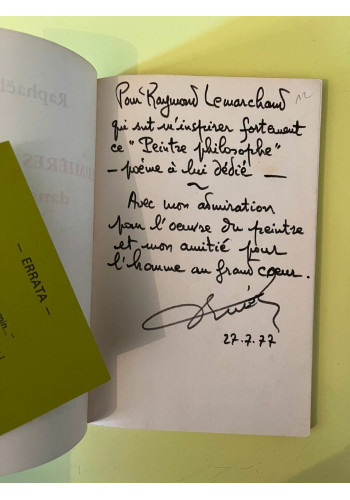 Pour Raymond Lemarchand
qui sut m'inspirer fortement
ce "Peintre philosophe"
— poème à lui dédié —
~
Avec mon admiration
pour l'oeuvre du peintre
et mon amitié pour
l'homme au grand coeur.
27.7.77
Raphaël
MIÈRES
dan
— ERRATA —
min